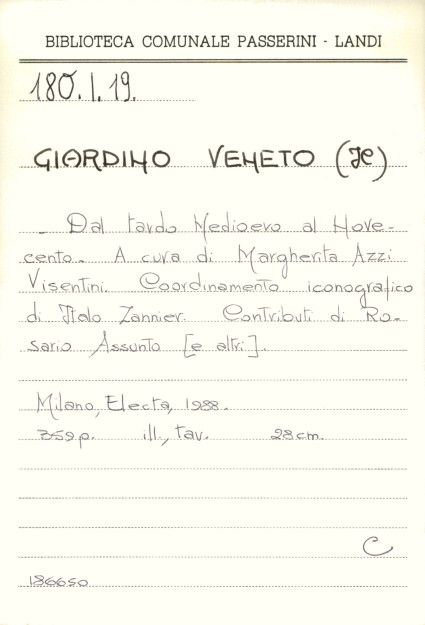 BIBLIOTECA COMUNALE PASSERINI - LANDI
180.I.19.
GIARDINO VENETO (Il)
_ Dal tardo Medioevo al Nove-
cento. A cura di Margherita Azzi
Visentini. Coordinamento iconografico
di Italo Zannier. Contributi di Ro-
sario Assunto [e altri].
Milano, Electa, 1988.
359 p. ill., tav. 28 cm.
C
186650